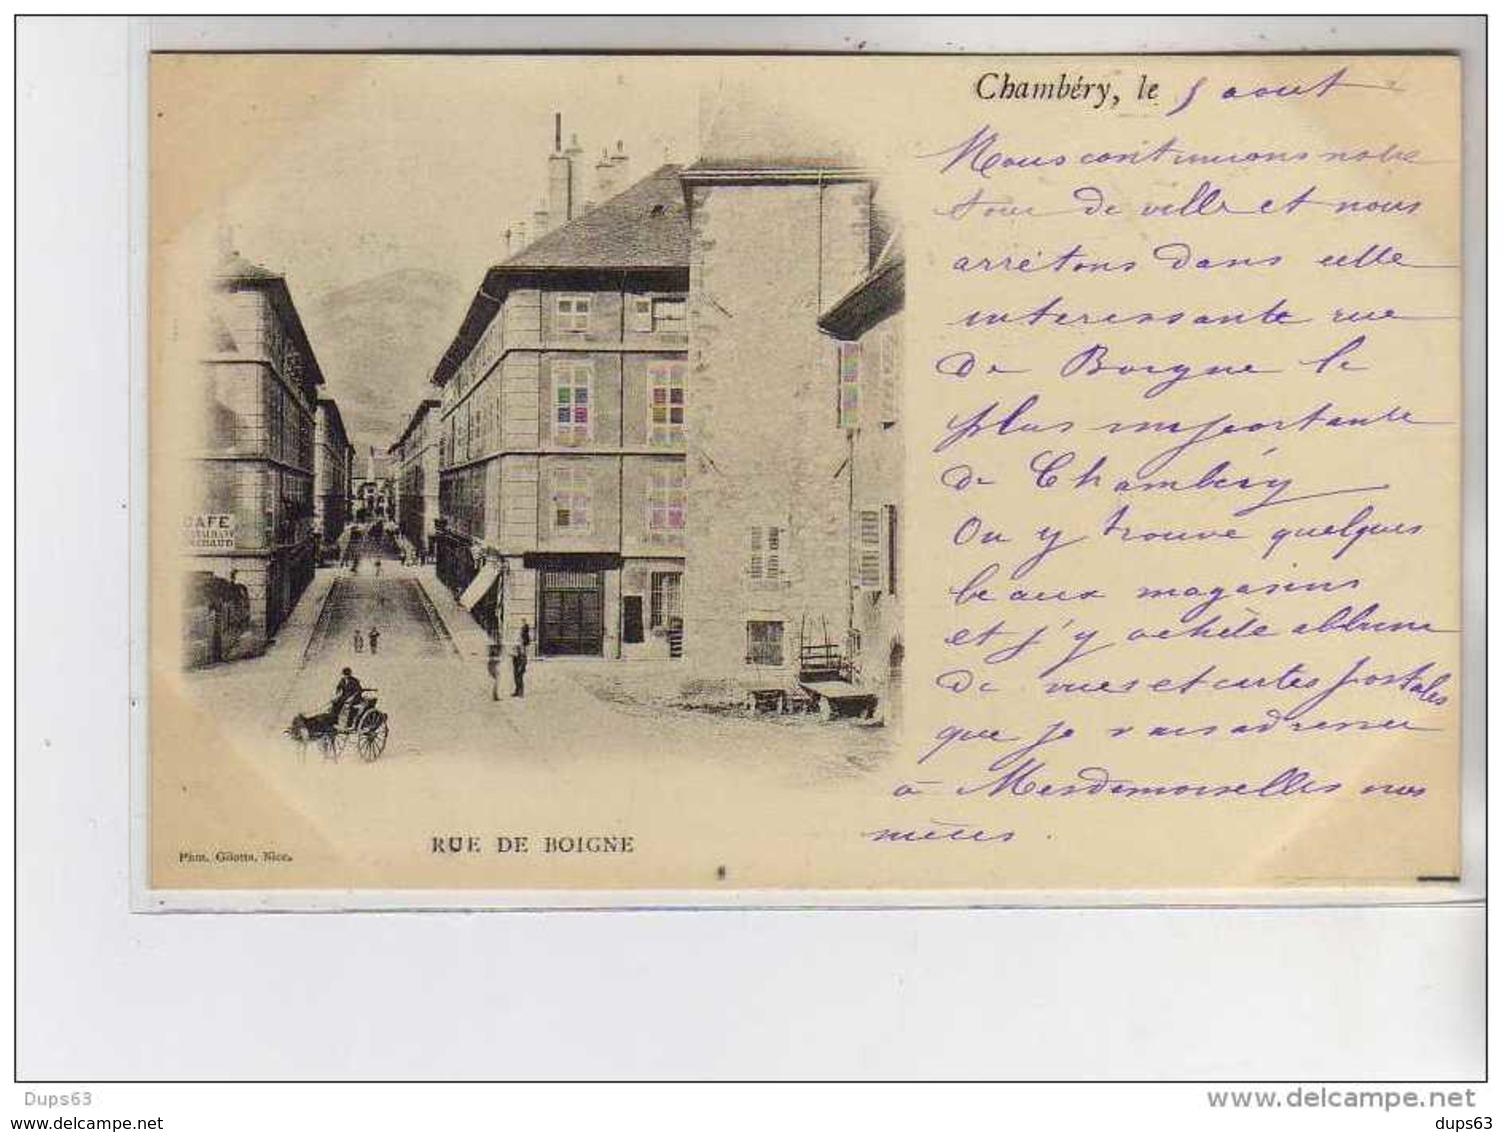 Chambéry, le 5 aout
Nous continuons notre
tour de ville et nous
arrêtons dans cette
interessante rue
de Boigne le
plus importante
de Chambéry
On y trouve quelques
beaux magasins
et j'y achète albums
de vues et cartes postales
que je vais adresser
à Mesdemoiselles nos
nièces.
CAFÉ
RUE DE BOIGNE
Phot. Giletta, Nice.
Dups63
www.delcampe.net
www.delcampe.net
dups63